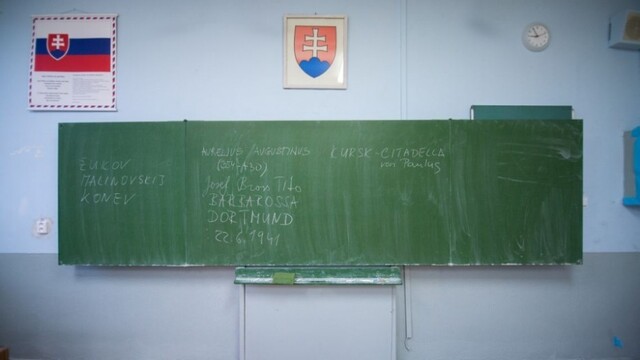 ŽUKOV
MALINOVSKIJ
KONEV
AURELIUS/AUGUSTINUS
(354-430)
Josef Broz Tito
BARBAROSSA
DORTMUND
22.6.1941
KURSK-CITADELLA
von Paulus